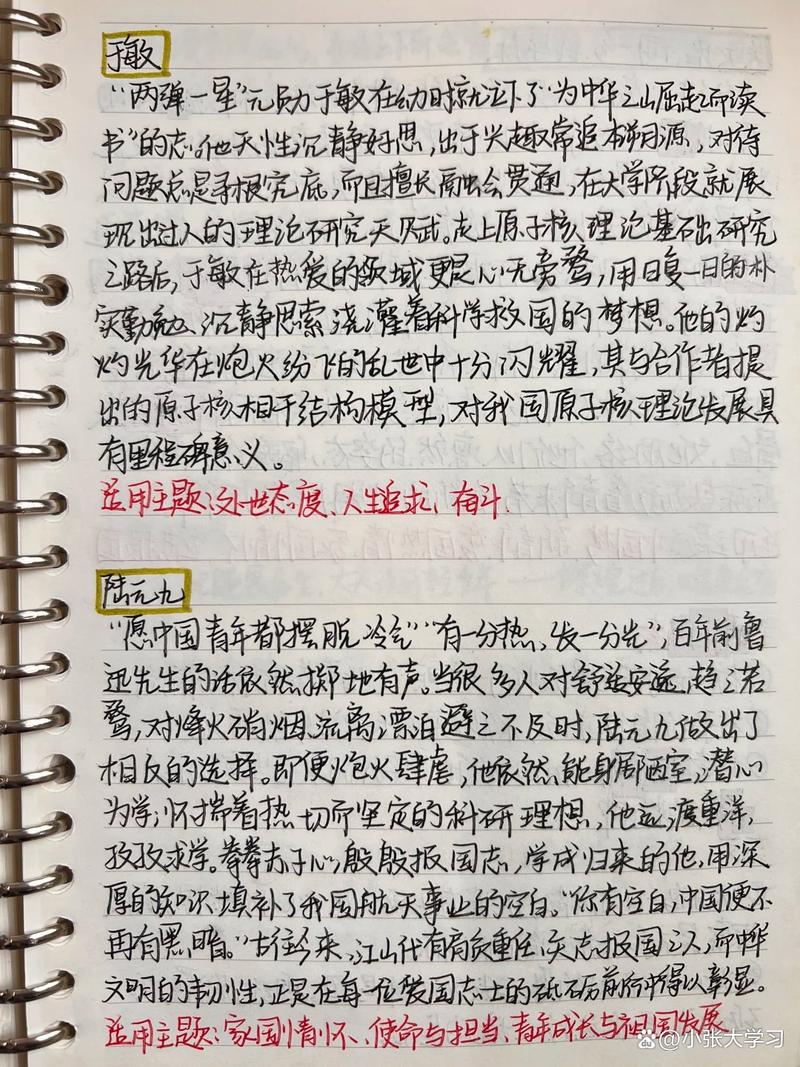 于敏
“两弹一星”元勋于敏在幼时就许下了“为中华之崛起而读
书”的志。他天性沉静好思，出于兴趣常追本溯源，对待
问题总是寻根究底，而且擅长融会贯通，在大学阶段就展
现出过人的理论研究天赋。走上原子核理论基础研究
之路后，于敏在热爱的领域更是心无旁骛，用日复一日的朴
实勤勉、沉静思索浇灌着科学救国的梦想。他的灼
灼光华在炮火纷飞的乱世中十分闪耀，其与合作者提
出的原子核相干结构模型，对我国原子核理论发展具
有里程碑意义。
适用主题：处世态度、人生追求、奋斗.
陆元九
“愿中国青年都摆脱冷气”“有一分热，发一分光”，百年前鲁
迅先生的话依然掷地有声。当很多人对舒适安逸趋之若
鹜，对烽火硝烟、流离漂泊避之不及时，陆元九做出了
相反的选择。即便炮火肆虐，他依然能身居陋室，潜心
为学；怀揣着热切而坚定的科研理想，他远渡重洋，
孜孜求学。拳拳赤子心，殷殷报国志，学成归来的他，用深
厚的知识填补了我国航天事业的空白。“你有空白，中国便不
再有黑暗。”古往今来，江山代有肩负重任、矢志报国之人，而中华
文明的韧性，正是在每一位爱国志士的砥砺前行中得以彰显。
适用主题：家国情怀、使命与担当、青年成长与祖国发展
小张大学习